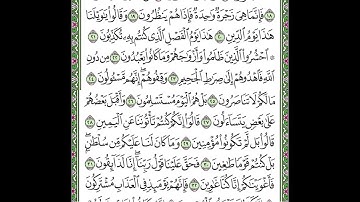 ١٨ فَإِنَّمَا هِيَ زَجْرَةٌ وَٰحِدَةٌ فَإِذَا هُمْ يَنظُرُونَ ١٩ وَقَالُوا۟ يَٰوَيْلَنَا
هَٰذَا يَوْمُ ٱلدِّينِ ٢٠ هَٰذَا يَوْمُ ٱلْفَصْلِ ٱلَّذِى كُنتُم بِهِۦ تُكَذِّبُونَ ٢١
۞ ٱحْشُرُوا۟ ٱلَّذِينَ ظَلَمُوا۟ وَأَزْوَٰجَهُمْ وَمَا كَانُوا۟ يَعْبُدُونَ ٢٢ مِن دُونِ
ٱللَّهِ فَٱهْدُوهُمْ إِلَىٰ صِرَٰطِ ٱلْجَحِيمِ ٢٣ وَقِفُوهُمْ إِنَّهُم مَّسْـُٔولُونَ ٢٤
مَا لَكُمْ لَا تَنَاصَرُونَ ٢٥ بَلْ هُمُ ٱلْيَوْمَ مُسْتَسْلِمُونَ ٢٦ وَأَقْبَلَ بَعْضُهُمْ
عَلَىٰ بَعْضٍ يَتَسَآءَلُونَ ٢٧ قَالُوٓا۟ إِنَّكُمْ كُنتُمْ تَأْتُونَنَا عَنِ ٱلْيَمِينِ ٢٨
قَالُوا۟ بَل لَّمْ تَكُونُوا۟ مُؤْمِنِينَ ٢٩ وَمَا كَانَ لَنَا عَلَيْكُم مِّن سُلْطَٰنٍۭ
بَلْ كُنتُمْ قَوْمًا طَٰغِينَ ٣٠ فَحَقَّ عَلَيْنَا قَوْلُ رَبِّنَآ إِنَّا لَذَآئِقُونَ ٣١
فَأَغْوَيْنَٰكُمْ إِنَّا كُنَّا غَٰوِينَ ٣٢ فَإِنَّهُمْ يَوْمَئِذٍ فِى ٱلْعَذَابِ مُشْتَرِكُونَ